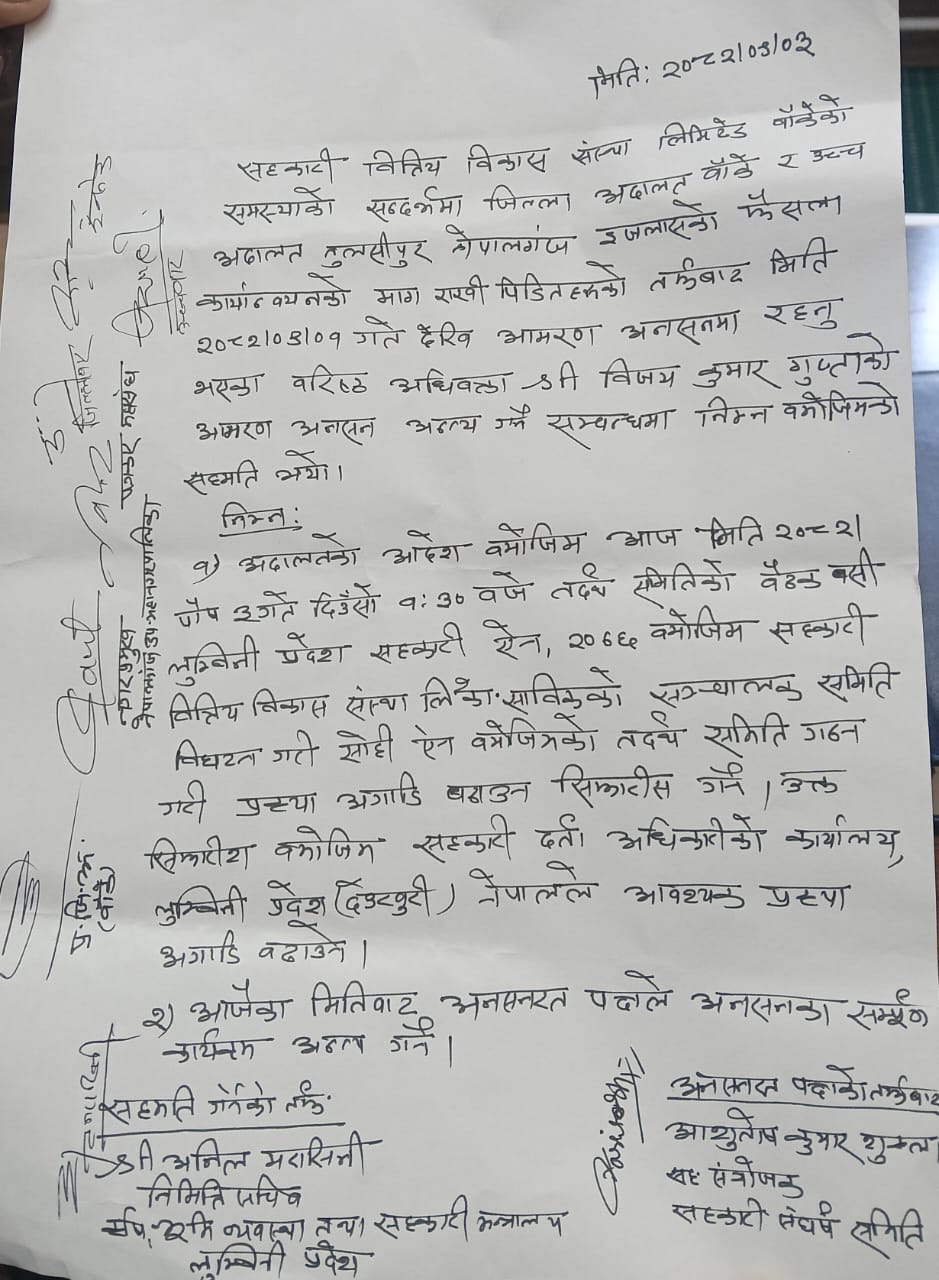 मिति: २०८२।०९।०३
सहकारी वित्तिय विकास संस्था लिमिटेड बाँकेको
समस्याको सन्दर्भमा जिल्ला अदालत बाँके र उच्च
अदालत तुलसीपुर नेपालगंज इजलासको फैसला
कार्यान्वयनको माग राखी पिडितहरुको तर्फबाट मिति
२०८२।०९।०१ गते देखि आमरण अनसनमा रहनु
भएका वरिष्ठ अधिवक्ता श्री विजय कुमार गुप्ताको
आमरण अनसन अन्त्य गर्ने सम्वन्धमा निम्न वमोजिमको
सहमति भयो।
निम्न:
१) अदालतको आदेश वमोजिम आज मिति २०८२।
पौष ३ गते दिउँसो १:३० वजे तदर्थ समितिको बैठक बसी
लुम्बिनी प्रदेश सहकारी ऐन, २०७६ वमोजिम सहकारी
वित्तिय विकास संस्था लि. साविकको सञ्चालक समिति
विघटन गरी सोही ऐन वमोजिमको तदर्थ समिति गठन
गरी प्रकृया अगाडि बढाउन सिफारीस गर्ने। उक्त
सिफारीश वमोजिम सहकारी दर्ता अधिकारीको कार्यालय,
लुम्बिनी प्रदेश (देउखुरी) नेपालले आवश्यक प्रकृया
अगाडि वढाउने।
२) आजैका मितिवाट अनसनरत पक्षले अनसनका सम्पूर्ण
कार्यक्रम अन्त्य गर्ने।
सहमति गर्नेको तर्फ
श्री अनिल मरासिनी
निमित्त सचिव
कृषि, भूमि व्यवस्था तथा सहकारी मन्त्रालय
लुम्बिनी प्रदेश
अनसनरत पक्षको तर्फबाट
आशुतोष कुमार शुक्ला
सह संयोजक
सहकारी संघर्ष समिति
नगर प्रमुख
नेपालगंज उप-महानगरपालिका
प्र.जि.अ.
(बाँके)